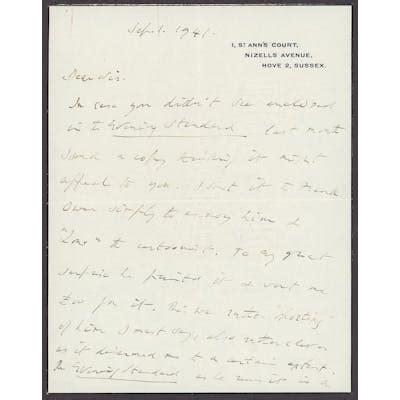 Sept. 1941.
1, ST ANN'S COURT,
NIZELLS AVENUE,
HOVE 2, SUSSEX.
Dear Sir.
In case you didn't see enclosed
in the Evening Standard last month
I send a copy thinking it might
appeal to you. I sent it to Frank
Owen simply to annoy him &
"Low" the cartoonist. To my great
surprise he printed it & sent me
for it. This was rather "sporting"
of him I must say, also rather clever
as it disarmed me to a certain extent.
The Evening Standard as he runs it is a